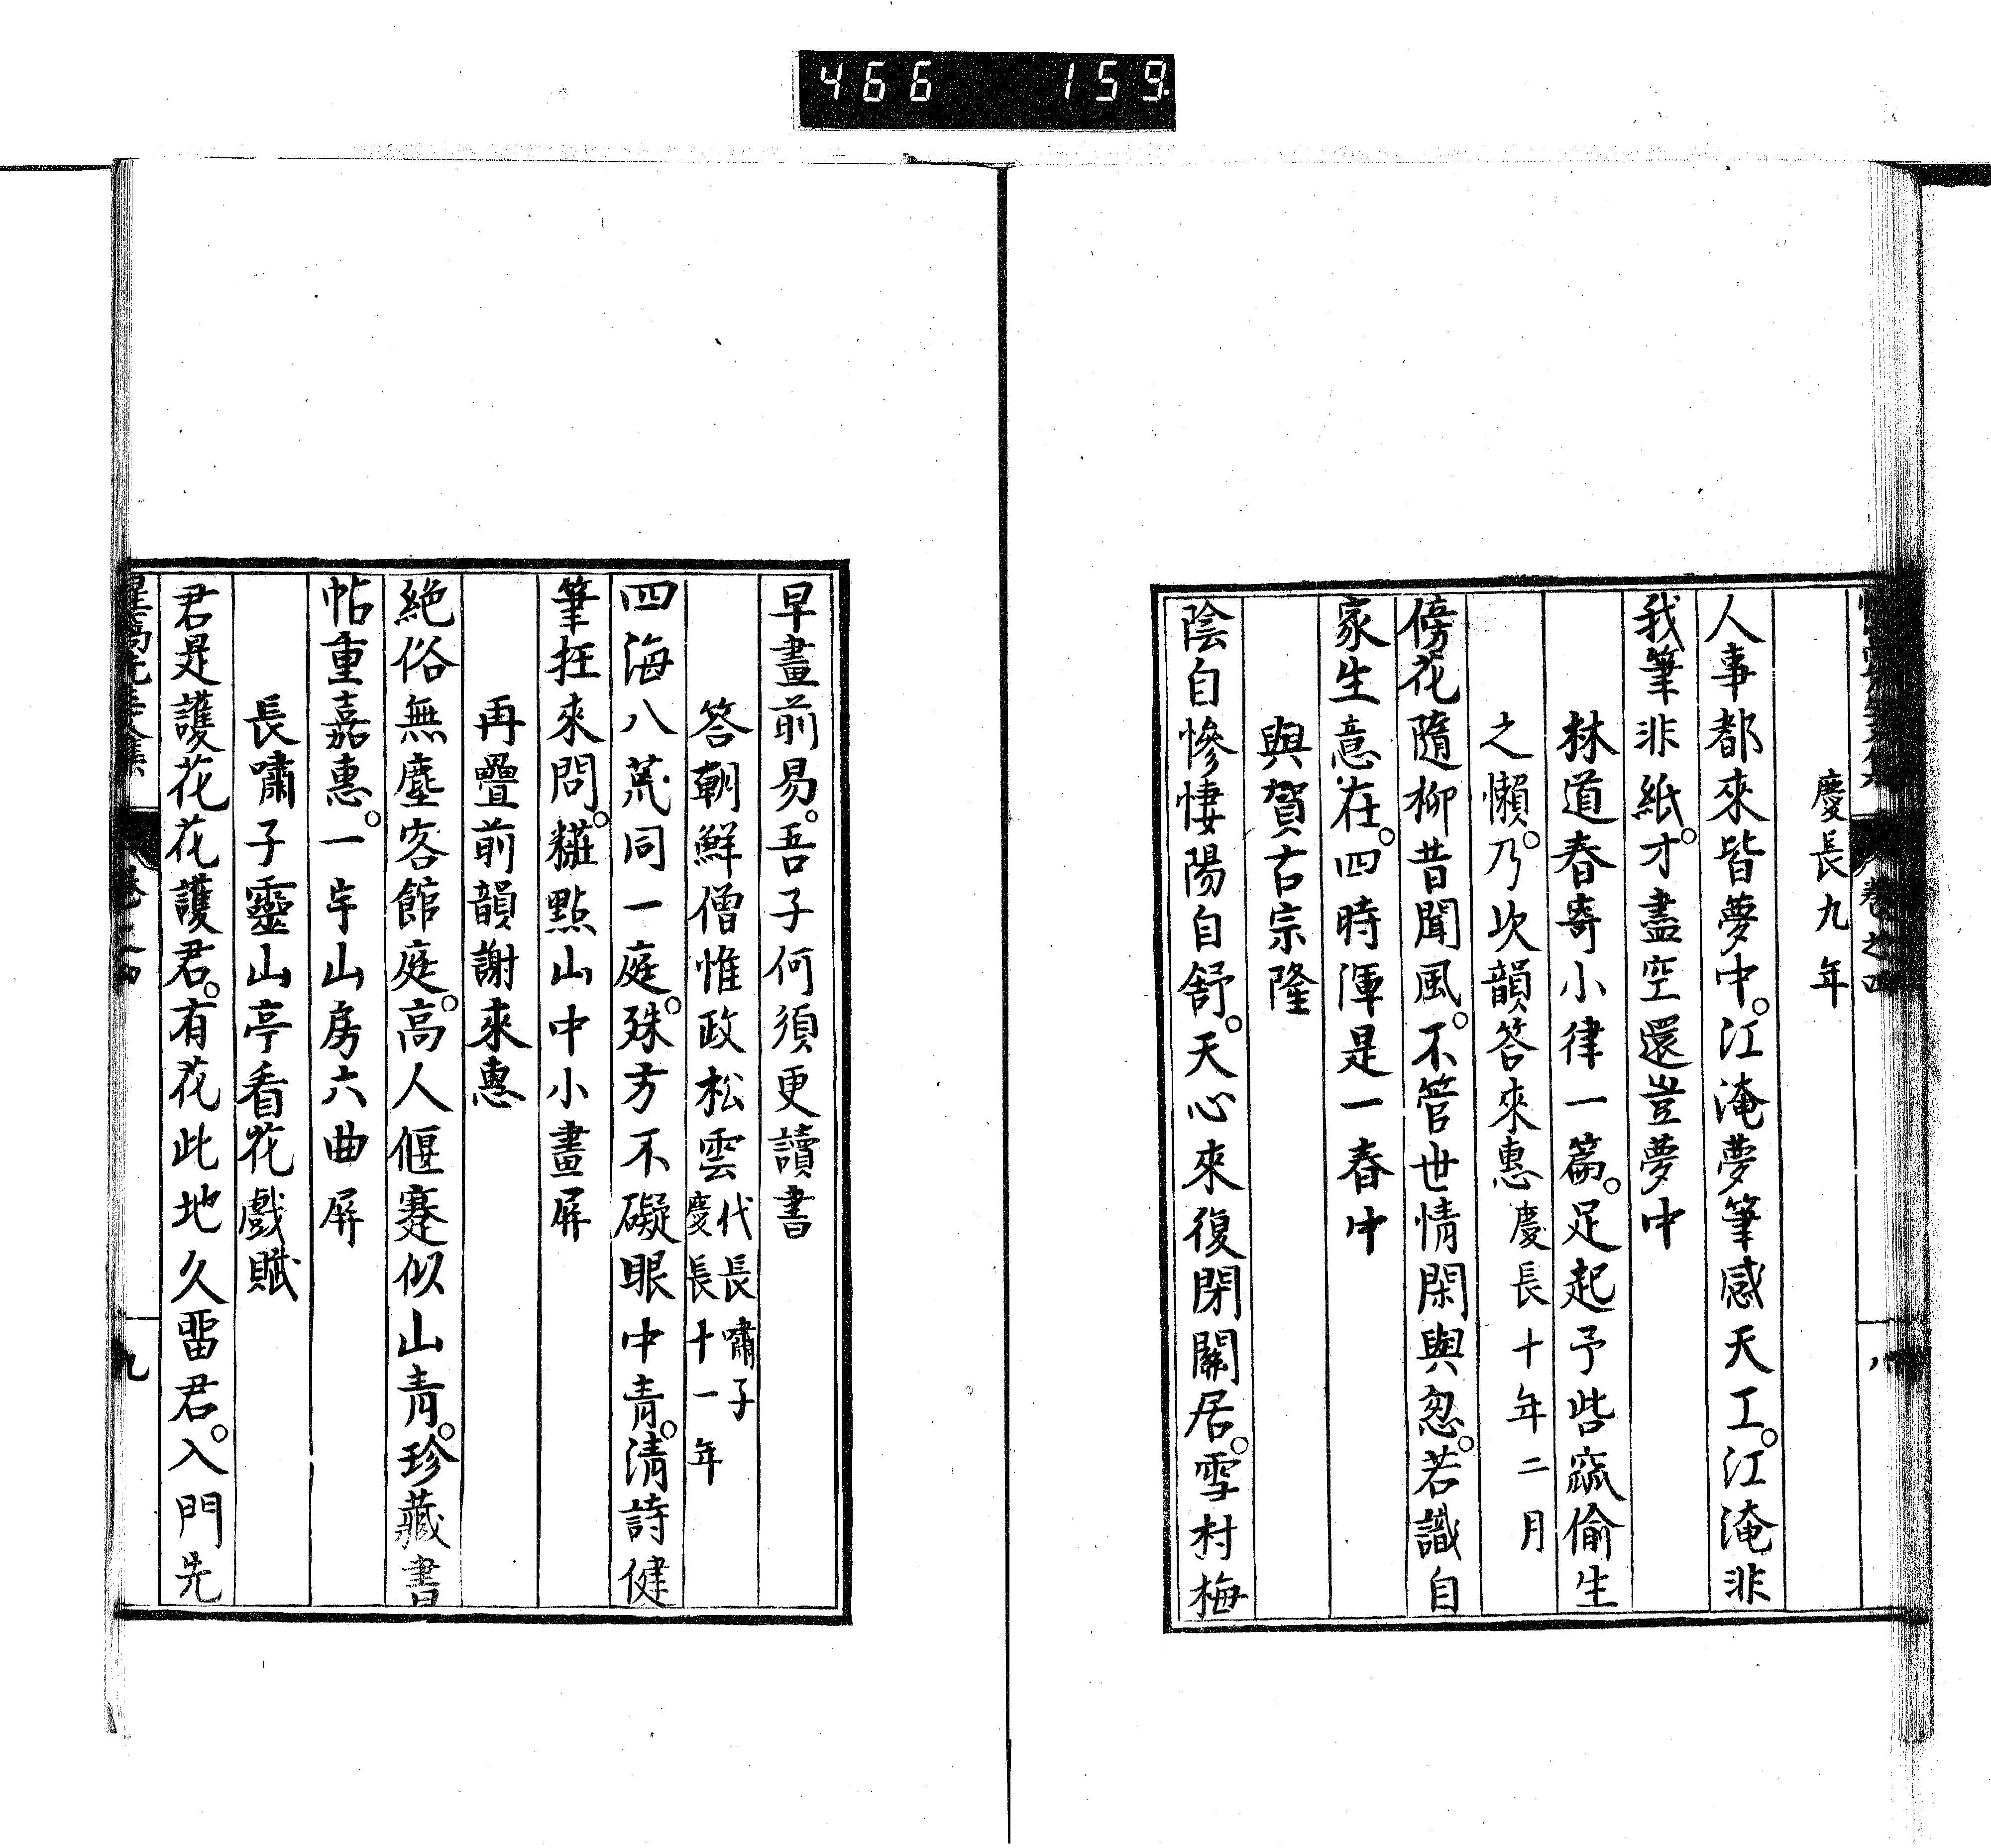 466 159
慶長九年
人事都來皆夢中。江淹夢筆感天工。江淹非
我筆非紙。才盡空還豈夢中
林道春寄小律一篇。足起予呰窳偷生
之懶。乃次韻答來惠慶長十年二月
傍花隨柳昔聞風。不管世情閑與怱。若識自
家生意在。四時渾是一春中
與賀古宗隆
陰自慘悽陽自舒。天心來復閉關居。雪村梅
早畫前易。吾子何須更讀書
答朝鮮僧惟政松雲代長嘯子
慶長十一年
四海八荒同一庭。殊方不礙眼中青。清詩健
筆抂來問。糚點山中小畫屏
再疊前韻謝來惠
絕俗無塵客館庭。高人偃蹇似山青。珍藏書
帖重嘉惠。一宇山房六曲屏
長嘯子靈山亭看花戲賦
君是護花花護君。有花此地久畱君。入門先
九